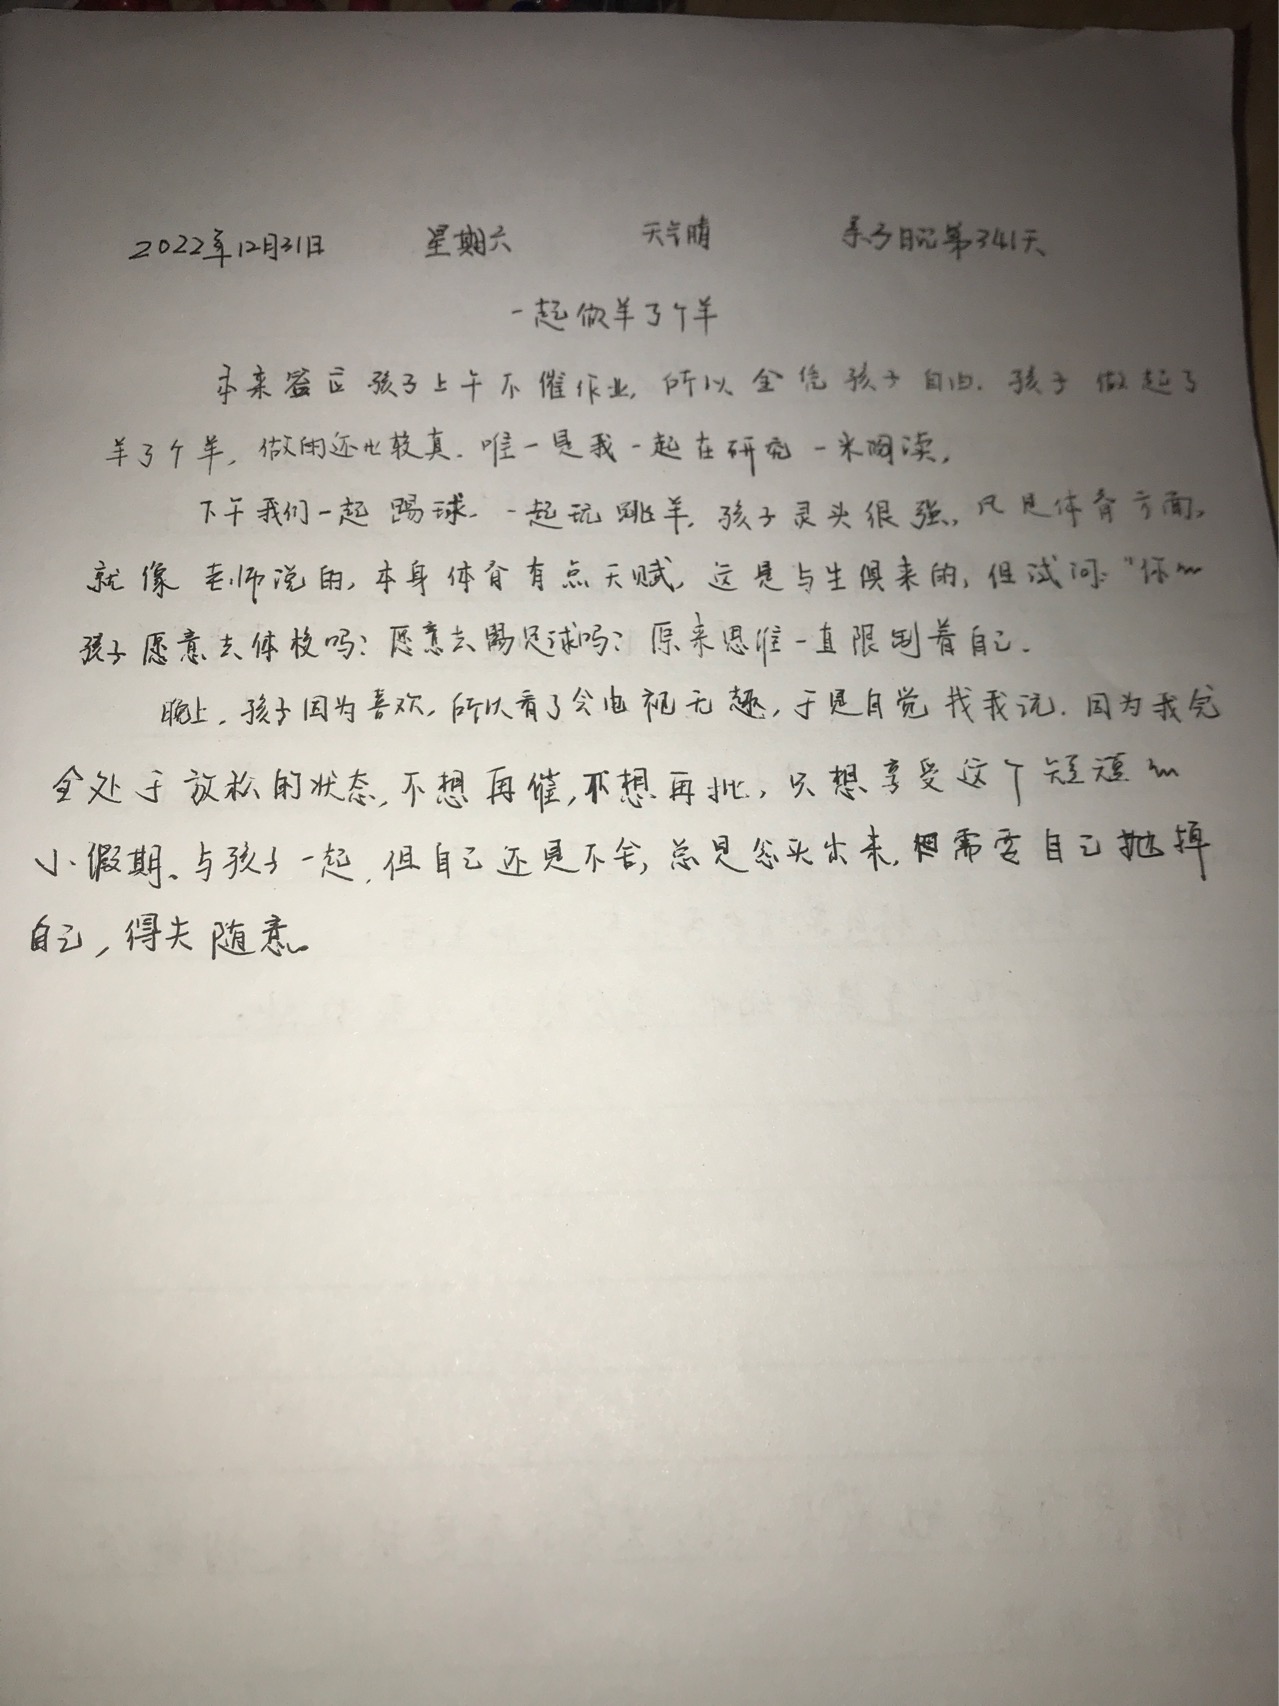 2022年12月31日 星期六 天气晴 亲子日记第341天
一起做羊了个羊
本来 孩子上午不催作业,所以全凭孩子自由.孩子做起了
羊了个羊,做的还比较真.唯一是我一起在研究一米阅读,
下午我们一起踢球.一起玩跳羊,孩子灵头很强,凡是体育方面,
就像老师说的,本身体育有点天赋,这是与生俱来的,但试问:“你
孩子愿意去体校吗?愿意去踢足球吗?原来思维一直限制着自己.
晚上,孩子因为喜欢,所以看了会电视无趣,于是自觉找我玩.因为我完
全处于放松的状态,不想再催,不想再批,只想享受这个短短
小假期、与孩子一起,但自己还是不舍,总是念头出来,但需要自己抛掉
自己,得失随意。